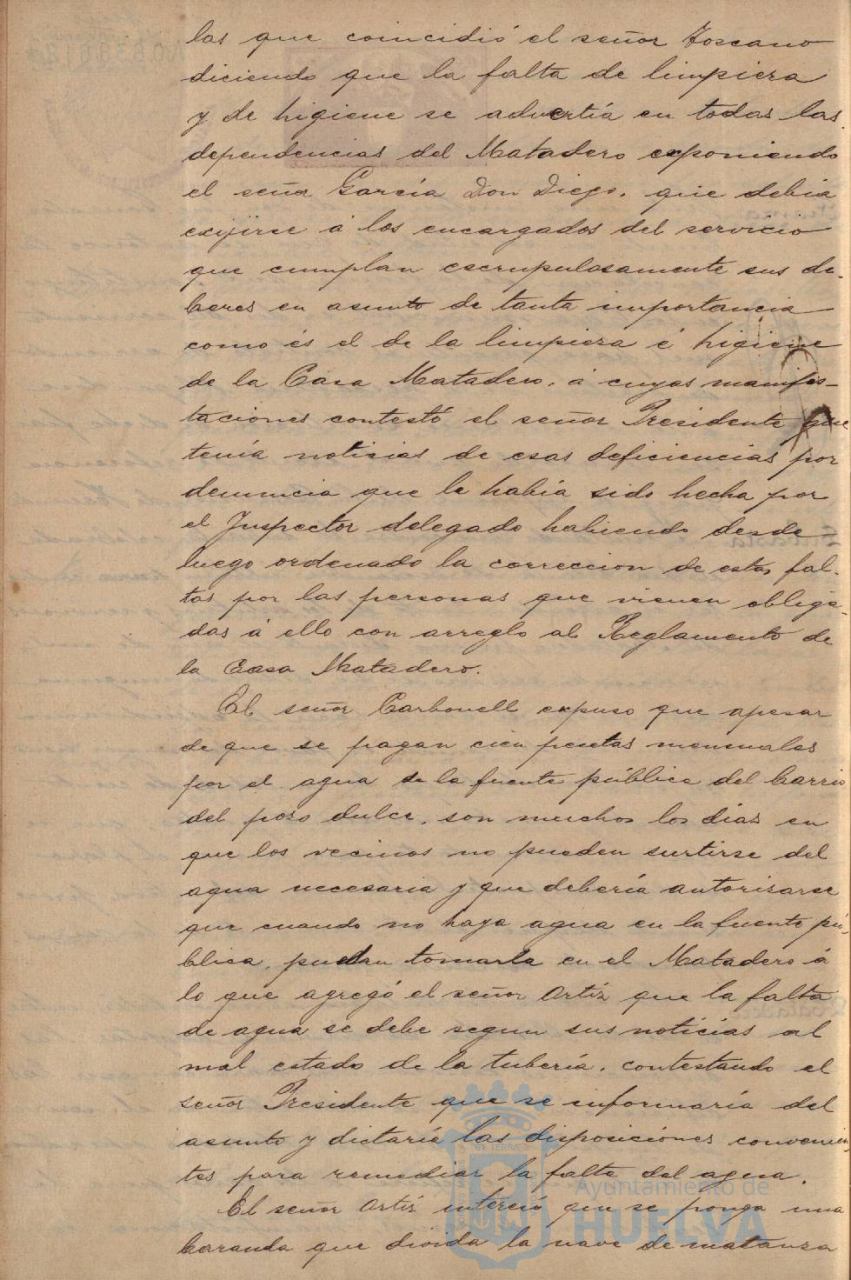 las que coincidió el señor Toscano
diciendo que la falta de limpieza
y de higiene se advertía en todas las
dependencias del Matadero exponiendo
el señor García Don Diego, que debia
exijirse á los encargados del servicio
que cumplan escrupulosamente sus de-
beres en asunto de tanta importancia
como és el de la limpieza é higiene
de la Casa Matadero, á cuyas manifes-
taciones contestó el señor Presidente que
tenía noticias de esas deficiencias por
denuncia que le había sido hecha por
el Inspector delegado habiendo desde
luego ordenado la correccion de estas fal-
tas por las personas que vienen obliga-
das á ello con arreglo al Reglamento de
la Casa Matadero.
El señor Carbonell expuso que apesar
de que se pagan cien pesetas mensuales
por el agua de la fuente pública del barrio
del pozo dulce, son muchos los días en
que los vecinos no pueden surtirse del
agua necesaria y que debería autorisarse
que cuando no haya agua en la fuente pú-
blica, puedan tomarla en el Matadero á
lo que agregó el señor Ortiz que la falta
de agua se debe segun sus noticias al
mal estado de la tubería, contestando el
señor Presidente que se informaría del
asunto y dictaría las disposiciones convenien-
tes para remediar la falta del agua.
El señor Ortiz interesó que se ponga una
baranda que divida la nave de matanza
Ayuntamiento de
HUELVA